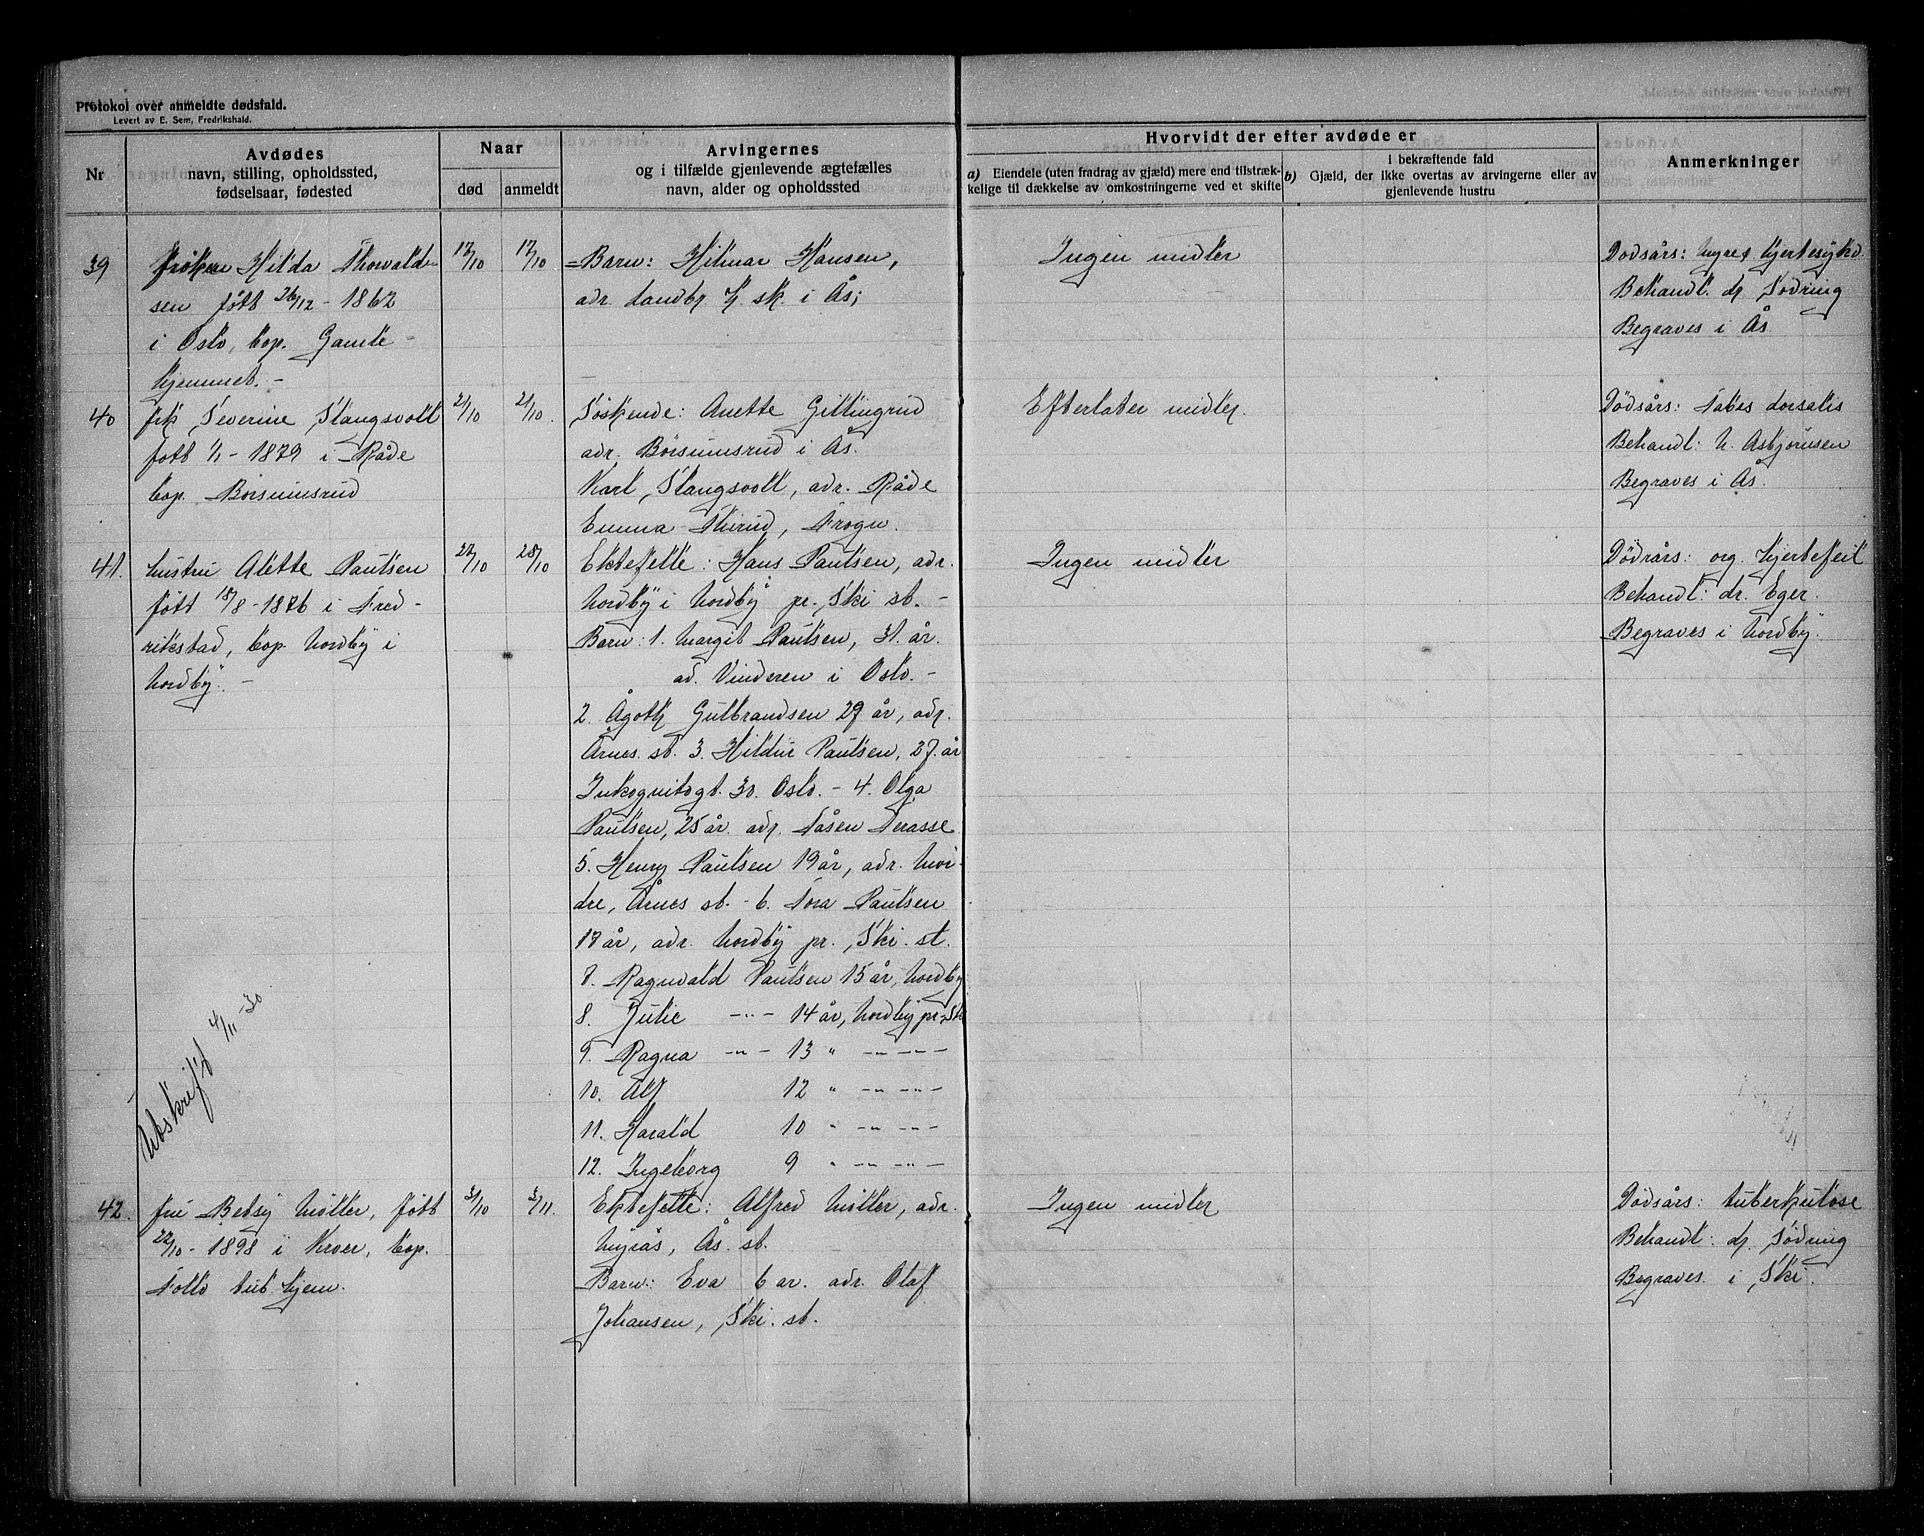 Protokol over anmeldte dødsfald.
Levert av E. Sem, Fredrikshald.
Nr
Avdødes
navn, stilling, opholdssted,
fødselsaar, fødested
Naar
død
anmeldt
Arvingernes
og i tilfælde gjenlevende ægtefælles
navn, alder og opholdssted
Hvorvidt der efter avdøde er
a) Eiendele (uten fradrag av gjæld) mere end tilstræk-
kelige til dækkelse av omkostningerne ved et skifte
b) I bekræftende fald
Gjæld, der ikke overtas av arvingerne eller av
gjenlevende hustru
Anmerkninger
39
frøken Hilda Thorvald-
sen født 26/12 - 1862
i Oslo, bop. Gamle-
hjemmet. -
17/10
17/10
Barn: Hilmar Hansen,
adr. Landbr. h. sk. i Ås;
Ingen midler
Dødsårs: hjertesykd.
Behandl. dr. Sødring
Begraves i Ås
40
frk Severine Slangsvoll
født 1/1 - 1879 i Råde
bop. Børsumsrud
21/10
21/10.
Søskende: Anette Gillingrud
adr. Børsumsrud i Ås.
Karl Slangsvoll, adr. Råde
Emma Thirud, Frogn.
Efterlater midler.
Dødsårs: Tabes dorsalis
Behandl: h. Asbjørnsen
Begraves i Ås.
41.
hustru Alette Paulsen
født 18/8 - 1876 i Fred-
rikstad, bop. Nordby i
Nordby. -
27/10
28/10
Ektefelle: Hans Paulsen, adr.
Nordby i Nordby pr. Ski st. -
Barn: 1. Margit Paulsen, 31. år.
ad. Vinderen i Oslo. -
2. Ågoth Gulbrandsen 29 år, adr.
Årnes. st. 3. Hildur Paulsen, 27. år
Inkognitogt. 30. Oslo. - 4. Olga
Paulsen, 25 år. adr. Tåsen Terasse
5. Henry Paulsen 19 år, adr. Hvi-
dre, Årnes st. - 6. Tora Paulsen
17 år, adr. Nordby pr. Ski. st.
7. Ragnvald Paulsen 15 år, Nordby
8. Julie -"- 14 år, Nordby pr. Sk
9. Ragna -"- 13 " -"- -"-
10. Alf 12 " -"- -"-
11. Harald 10 " -"- -"-
12. Ingeborg 9 " -"- -"-
Ingen midler
Dødsårs: org. hjertefeil
Behandl: dr. Eger.
Begraves i Nordby.
Utskrift 4/11 - 30
42.
fru Betsy Møller, født
22/10 - 1898 i Kroer, bop.
Follo tub. hjem.
31/10
3/11.
Ektefelle: Alfred Møller, adr.
Myrås, Ås. st.
Barn: Eva 6 ar. adr. Olaf
Johansen, Ski. st.
Ingen midler
Dødsårs: tuberkulose
Behandl: dr. Sødring
Begraves. i Ski.